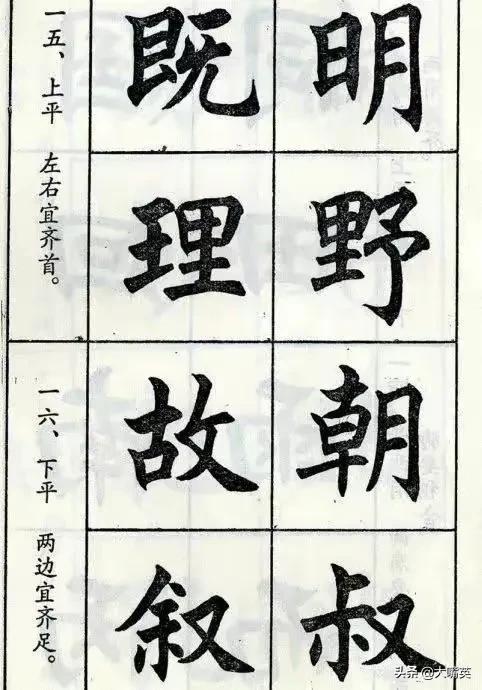 一五、上平 左右宜齐首。
明 既
野 理
一六、下平 两边宜齐足。
朝 故
叔 叙
头条@大嘴英